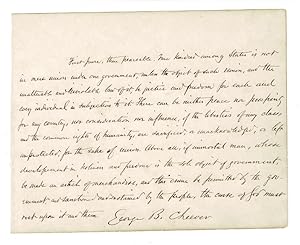 First pure, then peaceable. True kindred among States is not
in mere union under one government, unless the object of such union, and the
unalterable and invariable law of it, be justice and freedom for each and
every individual in subjection to it. There can be neither peace nor prosperity
for any country, nor consideration nor influence, if the liberties of any class,
and the common rights of humanity, are sacrificed, or
unprotected, for the sake of union. Above all, if immortal man, whose
development in holiness and freedom is the sole object of government,
be made an article of merchandise, and this crime be permitted by the gov-
ernment and sanctioned and sustained by the people, the curse of God must
rest upon it and them.
George B. Cheever